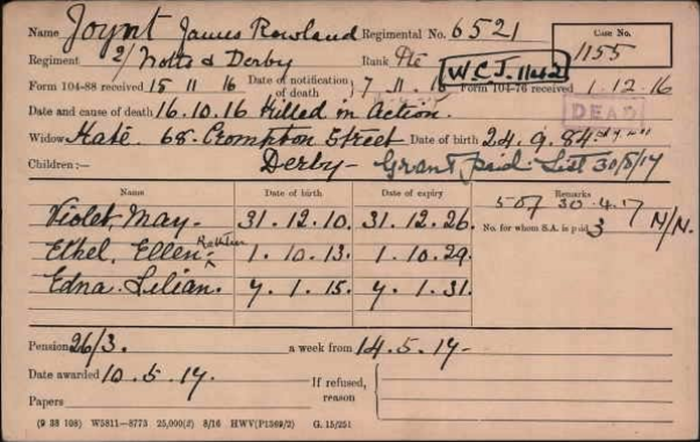 Name Joynt James Rowland Regimental No. 6521 Case No.
Regiment 2/ Notts & Derby Rank Pte 1155
W.C.J. 1142
Form 104-88 received 15 11 16 Date of notification of death 7.11.16 Form 104-76 received 1.12.16
DEAD
Date and cause of death 16.10.16 Killed in Action.
Widow Kate. 68. Crompton Street Date of birth 24.9.84.
Children:— Derby- Grant paid. List 30/5/17
Name Date of birth Date of expiry Remarks
507 30.4.17 N/N.
Violet May- 31.12.10. 31.12.26. No. for whom S.A. is paid 3
Ethel Ellen 1.10.13. 1.10.29.
Edna Lilian. 7.1.15. 7.1.31.
Pension 26/3. a week from 14.5.17-
Date awarded 10.5.17. If refused, reason
Papers
(9 38 108) W5811—8773 25,000(2) 8/16 HWV(P1569/2) G. 15/251